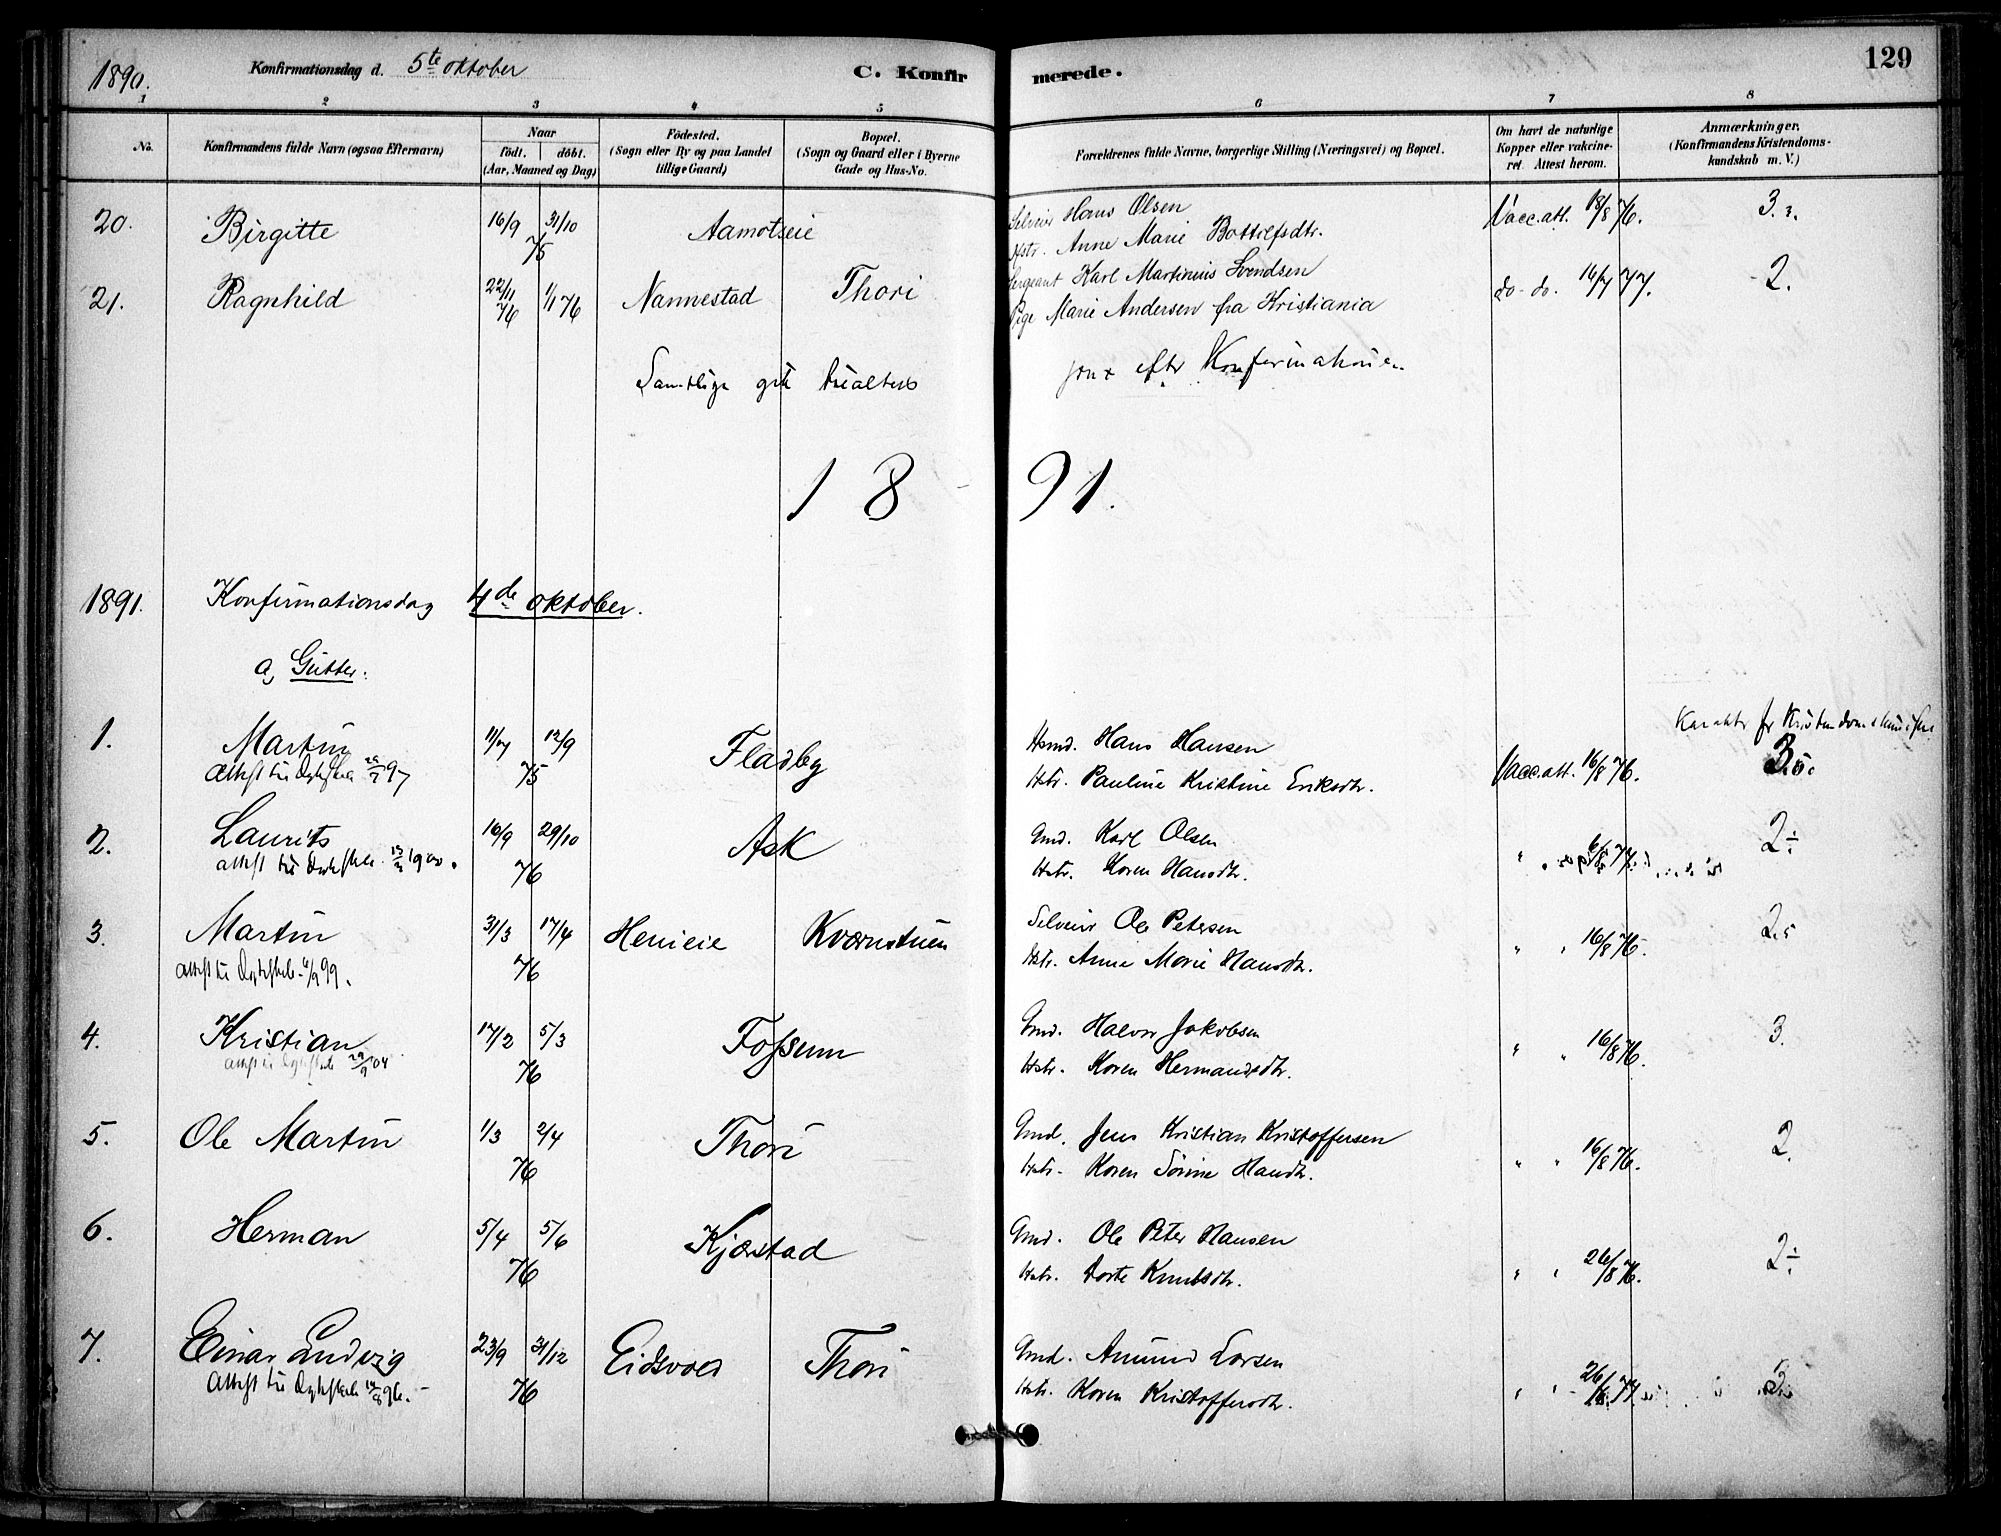 1890.
Konfirmationsdag d. 5te oktober
C. Konfirmerede.
129
1 2 3 4 5 6 7 8
No.
Konfirmandens fulde Navn (ogsaa Efternavn)
Naar
födt. döbt.
(Aar, Maaned og Dag)
Födested.
(Sogn eller By og paa Landet
tillige Gaard)
Bopæl.
(Sogn og Gaard eller i Byerne
Gade og Hus-No.
Forældrenes fulde Navne, borgerlige Stilling (Næringsvei) og Bopæl.
Om havt de naturlige
Kopper eller vakcine-
ret. Attest herom.
Anmærkninger.
(Konfirmandens Kristendoms-
kundskab m. V.)
20. Birgitte 16/9 31/10 75 Aamotseie Selveier Hans Olsen Vacc. att. 18/8 76. 3.
Hstr. Anne Marie Bottolfsdtr.
21. Ragnhild 22/11 76 1/1 76 Nannestad Thori Sergeant Karl Martinius Svendsen do - do. 16/7 77. 2.
Pige Marie Andersen fra Kristiania
Samtlige efter Konfirmationen.
1891.
1891. Konfirmationsdag 4de oktober.
a, Gutter.
Karakter for Kristendomskundskab
1. Martin 11/7 12/9 75 Fladby Hsmd. Hans Hansen Vacc. att. 16/8 76. 3.5.
Attest til 97
Hstr. Pauline Kristine Eriksdtr.
2. Laurits 16/9 29/10 76 Ask Gmd. Karl Olsen " " 6/8 77. 2÷
attest til 1900.
Hstr. Karen Hansdtr.
3. Martin 31/3 17/4 76 Henieie Kværnstuen Selveier Ole Petersen " " 16/8 76. 2.5
attest til 99.
Hstr. Anne Marie Hansdtr.
4. Kristian 17/2 5/3 76 Fossum Gmd. Halvor Jakobsen " " 16/8 76. 3.
attest til 04
Hstr. Karen Hermandsdtr.
5. Ole Martin 1/3 2/4 76 Thori Gmd. Jens Kristian Kristoffersen " " 16/8 76. 2.
Hstr. Karen Sørine Hansdtr.
6. Herman 5/4 5/6 76 Kjærstad Gmd. Ole Peter Hansen " " 26/8 76. 2÷
Hstr. Dorte Knutsdtr.
7. Einar Ludvig 23/9 31/12 76 Eidsvold Thori Gmd. Amund Larsen " " 26/8 77. 3
Attest til 96.
Hstr. Karen Kristoffersdtr.